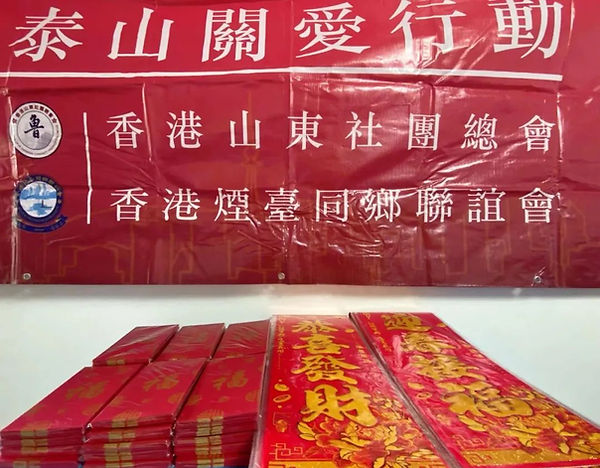 泰山關愛行動
魯
香港山東社團總會
香港煙臺同鄉聯誼會
福 福 福
恭喜發財
迎春接福